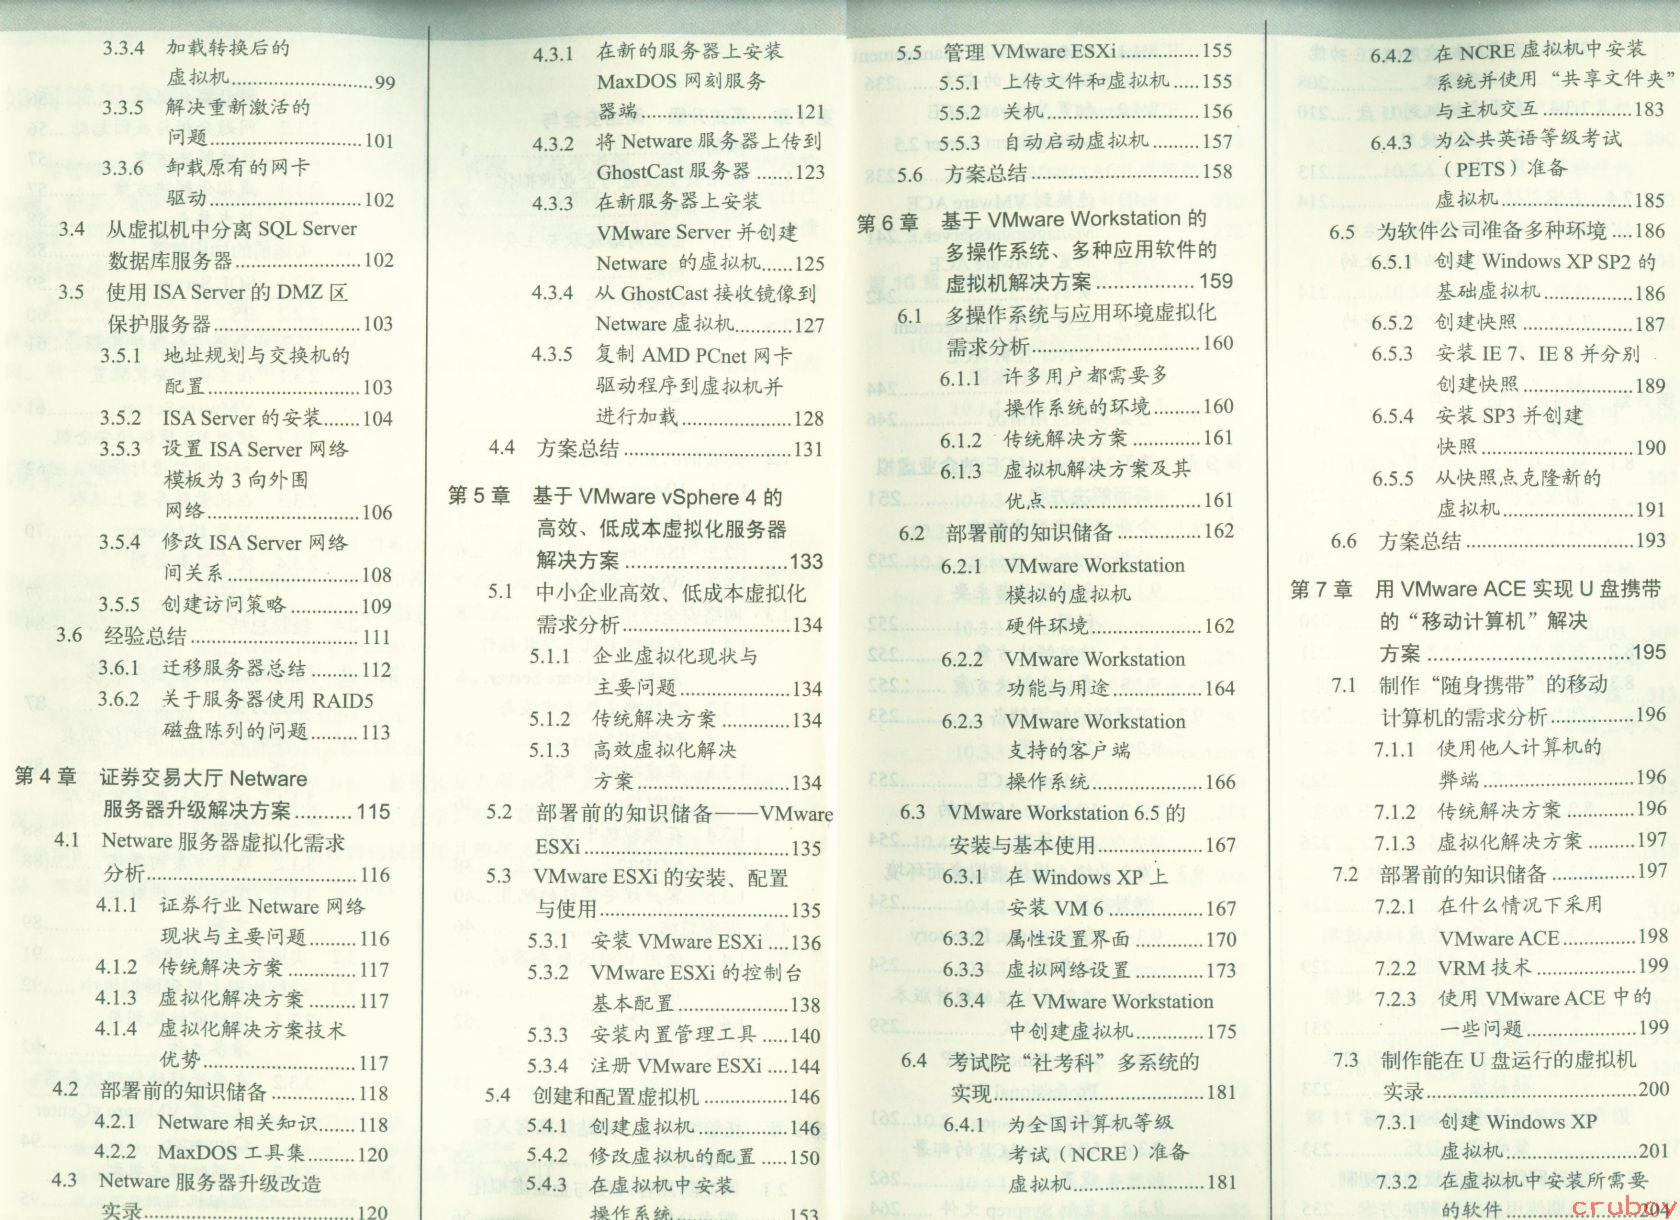 3.3.4 加载转换后的
虚拟机....................99
3.3.5 解决重新激活的
问题....................101
3.3.6 卸载原有的网卡
驱动....................102
3.4 从虚拟机中分离 SQL Server
数据库服务器....................102
3.5 使用 ISA Server 的 DMZ 区
保护服务器....................103
3.5.1 地址规划与交换机的
配置....................103
3.5.2 ISA Server 的安装......104
3.5.3 设置 ISA Server 网络
模板为 3 向外围
网络....................106
3.5.4 修改 ISA Server 网络
间关系....................108
3.5.5 创建访问策略..........109
3.6 经验总结....................111
3.6.1 迁移服务器总结......112
3.6.2 关于服务器使用 RAID5
磁盘陈列的问题......113
第 4 章 证券交易大厅 Netware
服务器升级解决方案..........115
4.1 Netware 服务器虚拟化需求
分析....................116
4.1.1 证券行业 Netware 网络
现状与主要问题......116
4.1.2 传统解决方案..........117
4.1.3 虚拟化解决方案......117
4.1.4 虚拟化解决方案技术
优势....................117
4.2 部署前的知识储备..........118
4.2.1 Netware 相关知识......118
4.2.2 MaxDOS 工具集......120
4.3 Netware 服务器升级改造
实录....................120
4.3.1 在新的服务器上安装
MaxDOS 网刻服务
器端....................121
4.3.2 将 Netware 服务器上传到
GhostCast 服务器......123
4.3.3 在新服务器上安装
VMware Server 并创建
Netware 的虚拟机......125
4.3.4 从 GhostCast 接收镜像到
Netware 虚拟机......127
4.3.5 复制 AMD PCnet 网卡
驱动程序到虚拟机并
进行加载....................128
4.4 方案总结....................131
第 5 章 基于 VMware vSphere 4 的
高效、低成本虚拟化服务器
解决方案....................133
5.1 中小企业高效、低成本虚拟化
需求分析....................134
5.1.1 企业虚拟化现状与
主要问题....................134
5.1.2 传统解决方案..........134
5.1.3 高效虚拟化解决
方案....................134
5.2 部署前的知识储备——VMware
ESXi....................135
5.3 VMware ESXi 的安装、配置
与使用....................135
5.3.1 安装 VMware ESXi....136
5.3.2 VMware ESXi 的控制台
基本配置....................138
5.3.3 安装内置管理工具.....140
5.3.4 注册 VMware ESXi....144
5.4 创建和配置虚拟机..........146
5.4.1 创建虚拟机..........146
5.4.2 修改虚拟机的配置.....150
5.4.3 在虚拟机中安装
操作系统....................153
5.5 管理 VMware ESXi..........155
5.5.1 上传文件和虚拟机.....155
5.5.2 关机....................156
5.5.3 自动启动虚拟机......157
5.6 方案总结....................158
第 6 章 基于 VMware Workstation 的
多操作系统、多种应用软件的
虚拟机解决方案..........159
6.1 多操作系统与应用环境虚拟化
需求分析....................160
6.1.1 许多用户都需要多
操作系统的环境......160
6.1.2 传统解决方案..........161
6.1.3 虚拟机解决方案及其
优点....................161
6.2 部署前的知识储备..........162
6.2.1 VMware Workstation
模拟的虚拟机
硬件环境....................162
6.2.2 VMware Workstation
功能与用途..........164
6.2.3 VMware Workstation
支持的客户端
操作系统....................166
6.3 VMware Workstation 6.5 的
安装与基本使用..........167
6.3.1 在 Windows XP 上
安装 VM 6..........167
6.3.2 属性设置界面..........170
6.3.3 虚拟网络设置..........173
6.3.4 在 VMware Workstation
中创建虚拟机..........175
6.4 考试院“社考科”多系统的
实现....................181
6.4.1 为全国计算机等级
考试（NCRE）准备
虚拟机....................181
6.4.2 在 NCRE 虚拟机中安装
系统并使用“共享文件夹”
与主机交互..........183
6.4.3 为公共英语等级考试
（PETS）准备
虚拟机....................185
6.5 为软件公司准备多种环境....186
6.5.1 创建 Windows XP SP2 的
基础虚拟机..........186
6.5.2 创建快照....................187
6.5.3 安装 IE 7、IE 8 并分别
创建快照....................189
6.5.4 安装 SP3 并创建
快照....................190
6.5.5 从快照点克隆新的
虚拟机....................191
6.6 方案总结....................193
第 7 章 用 VMware ACE 实现 U 盘携带
的“移动计算机”解决
方案....................195
7.1 制作“随身携带”的移动
计算机的需求分析..........196
7.1.1 使用他人计算机的
弊端....................196
7.1.2 传统解决方案..........196
7.1.3 虚拟化解决方案......197
7.2 部署前的知识储备..........197
7.2.1 在什么情况下采用
VMware ACE..........198
7.2.2 VRM 技术..........199
7.2.3 使用 VMware ACE 中的
一些问题....................199
7.3 制作能在 U 盘运行的虚拟机
实录....................200
7.3.1 创建 Windows XP
虚拟机....................201
7.3.2 在虚拟机中安装所需要
的软件....................204
cruboy